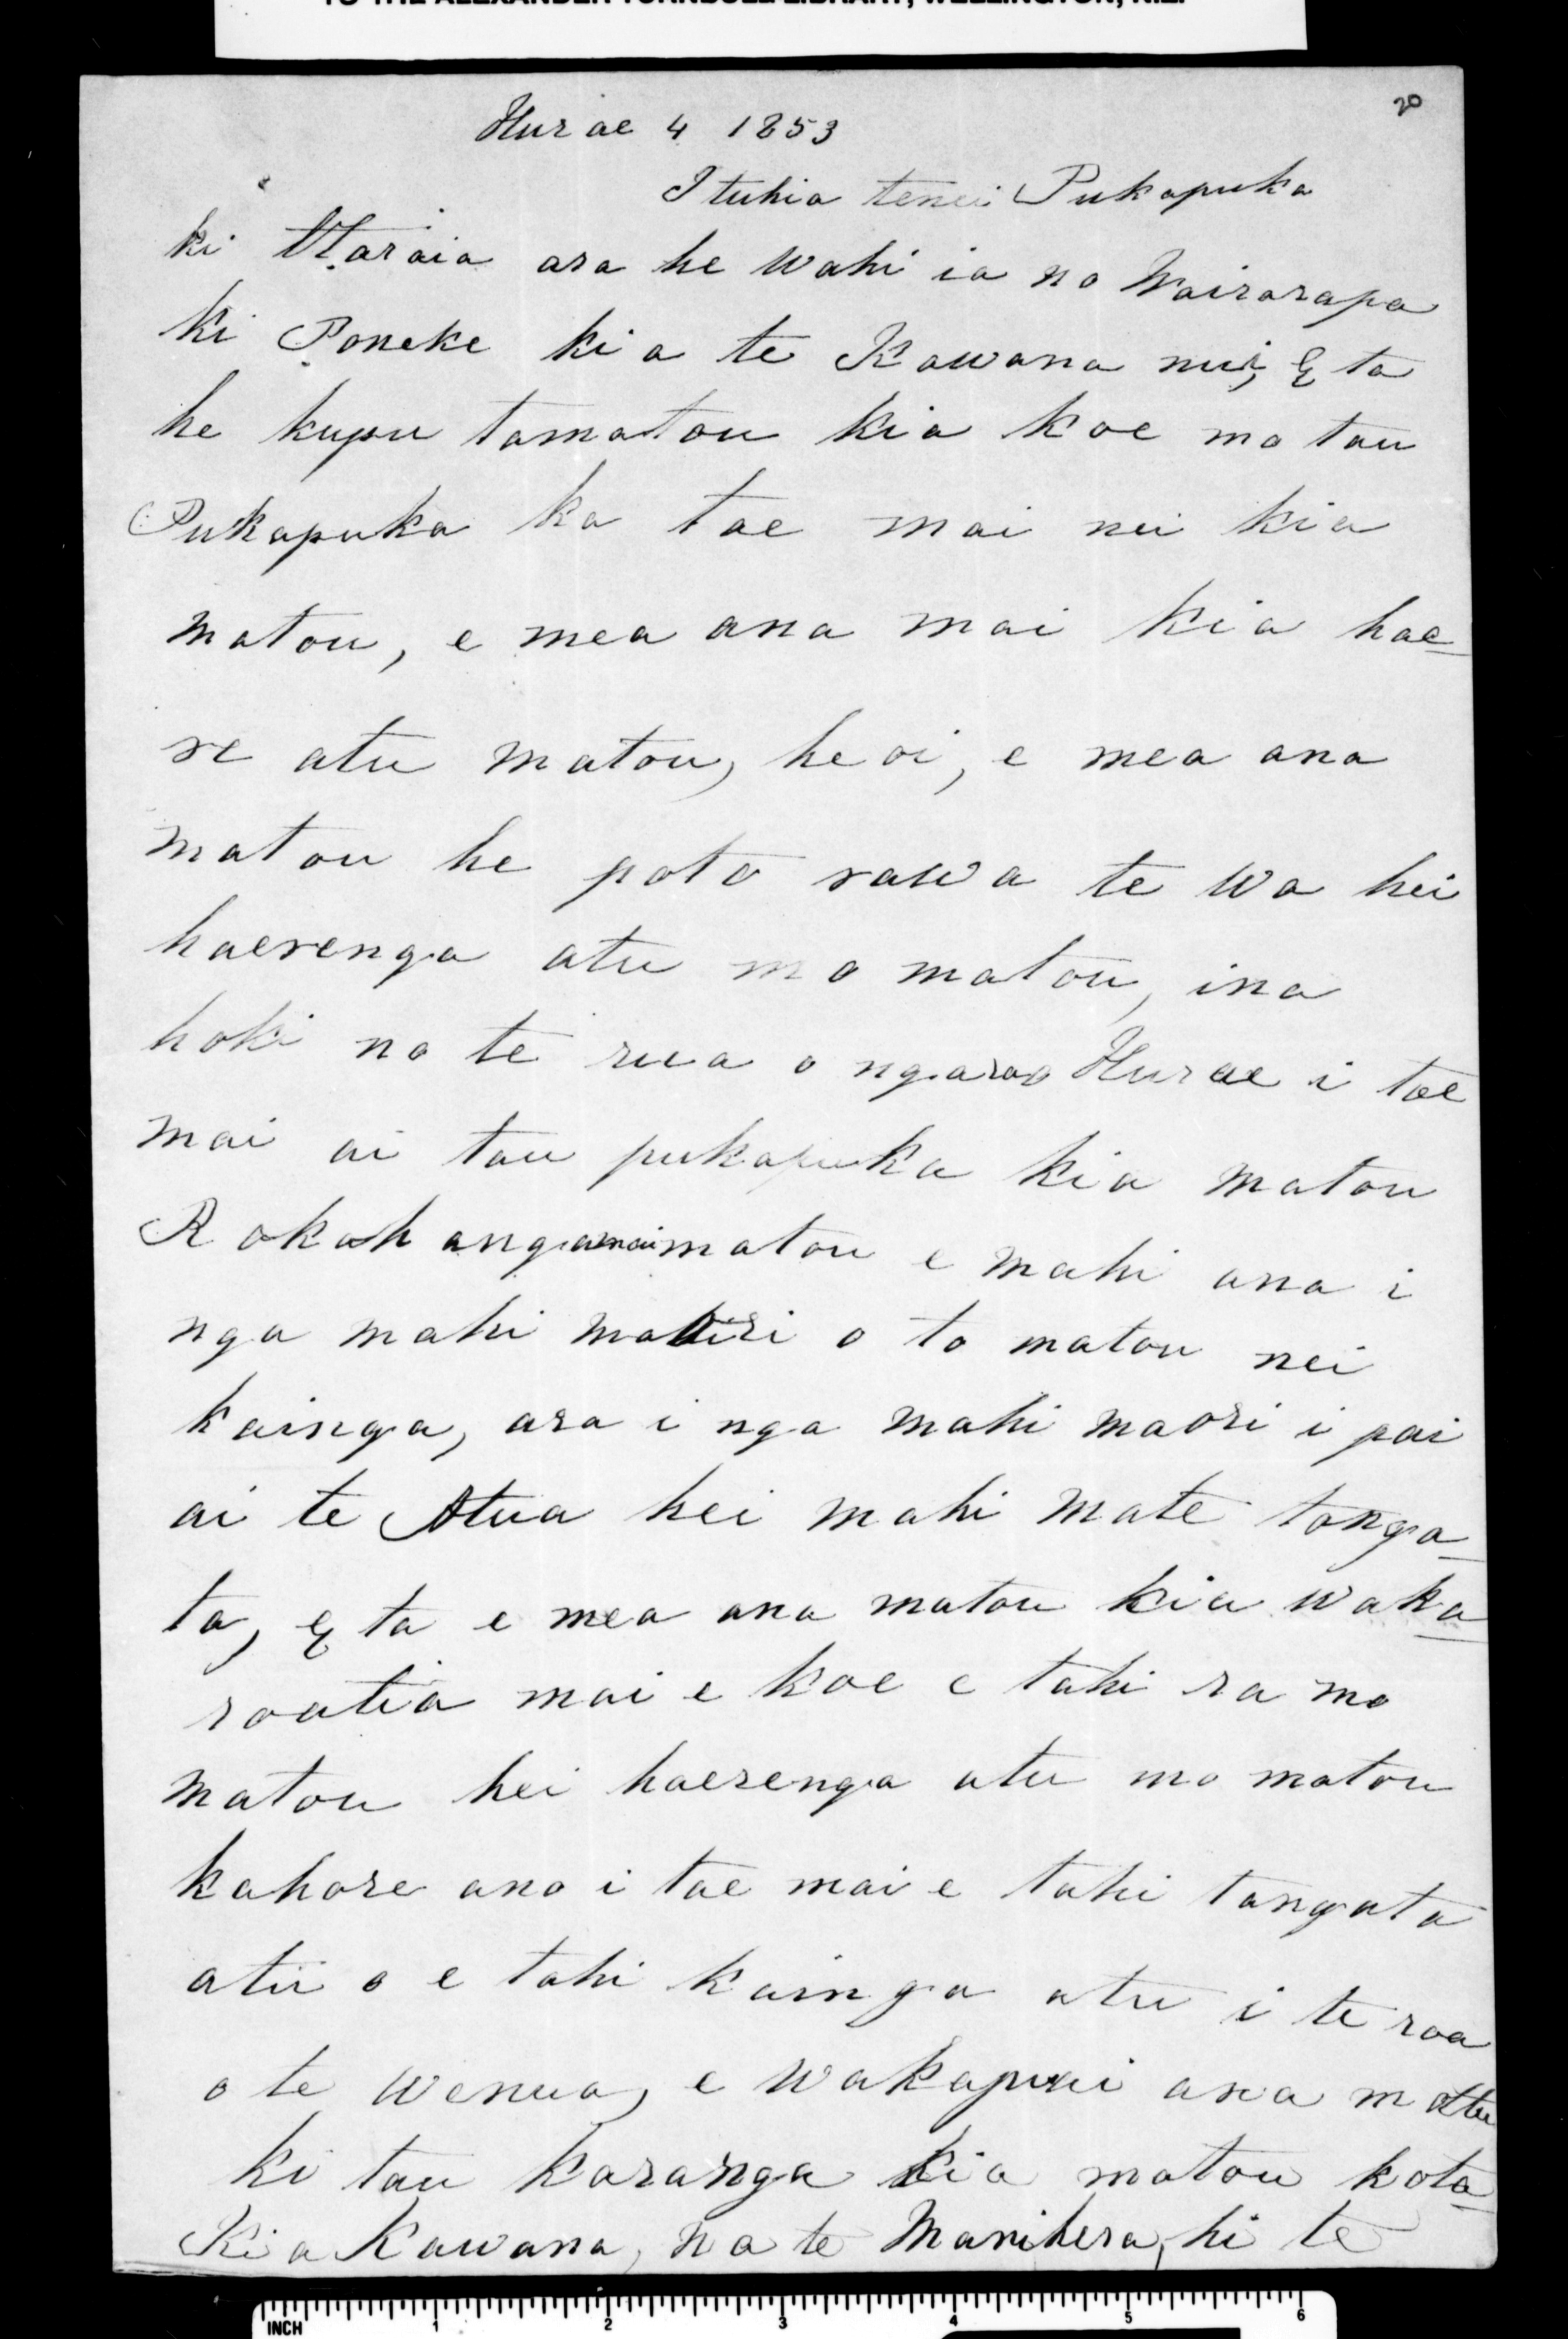 TO THE ALEXANDER TURNBULL LIBRARY, WELLINGTON, N.Z.
20
Hurae 4 1853
I tuhia tenei Pukapuka
ki Otaraia ara he wahi ia no Wairarapa
ki Poneke ki a te Kawana nui, E ta
he kupu tamatou kia koe mo tau
Pukapuka ka tae mai nei kia
matou, e mea ana mai kia hae-
re atu matou, heoi, e mea ana
matou he poto rawa te wa hei
haerenga atu mo matou, ina
hoki no te rua o ngaraoo Hurae i tae
mai ai tau pukapuka kia matou
Rokohangamaimatou e mahi ana i
nga mahi maori o to matou nei
kainga, ara i nga mahi maori i pai
ai te Atua hei mahi mate tanga-
ta, E ta e mea ana matou kia waka-
roatia mai e koe e tahi ra mo
matou hei haerenga atu mo matou
kahore ano i tae mai e tahi tangata
atu o e tahi kainga atu i te roa
o te wenua, e wakapai ana matu
ki tau karanga kia matou kota-
Kia Kawana, na te Manihera, hi te
INCH 1 2 3 4 5 6